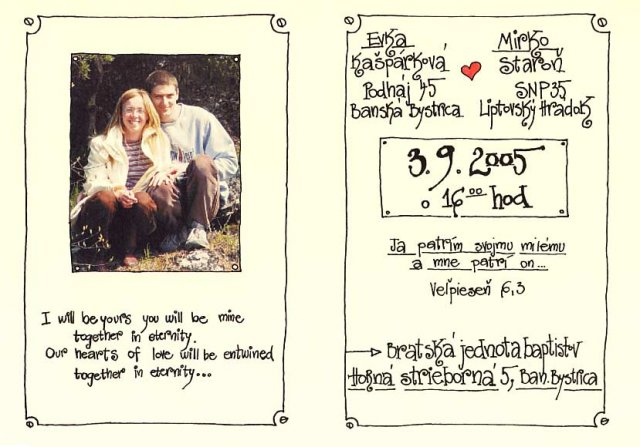 I will be yours you will be mine
together in eternity.
Our hearts of love will be entwined
together in eternity...
Evka
Kašpárková
Podháj 45
Banská Bystrica
Mirko
Staroň
SNP 35
Liptovský Hrádok
3.9.2005
o 16 00 hod
Ja patrím svojmu milému
a mne patrí on...
Veľpieseň 6,3
Bratská jednota baptistov
Horná strieborná 5, Ban. Bystrica